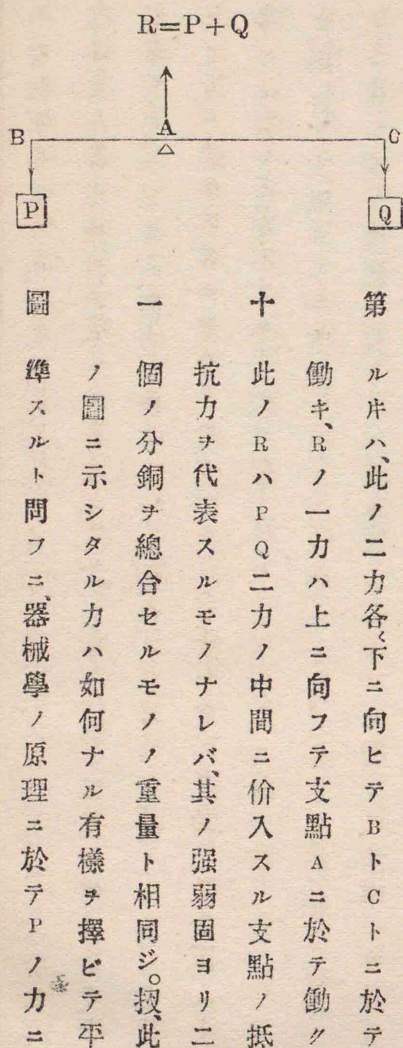 R=P+Q
A
B
C
P
Q
第十一圖
ルトキハ、此ノ二力各〻下ニ向ヒテBトCトニ於テ
働キ、Rノ一力ハ上ニ向フテ支點Aニ於テ働ク
此ノRハPQ二力ノ中間ニ価入スル支點ノ抵
抗力ヲ代表スルモノナレバ、其ノ强弱固ヨリ二
個ノ分銅ヲ總合セルモノノ重量ト相同ジ。扨、此
ノ圖ニ示シタル力ハ如何ナル有樣ヲ擇ビテ平
準スルト問フニ、器械學ノ原理ニ於テPノ力ニ